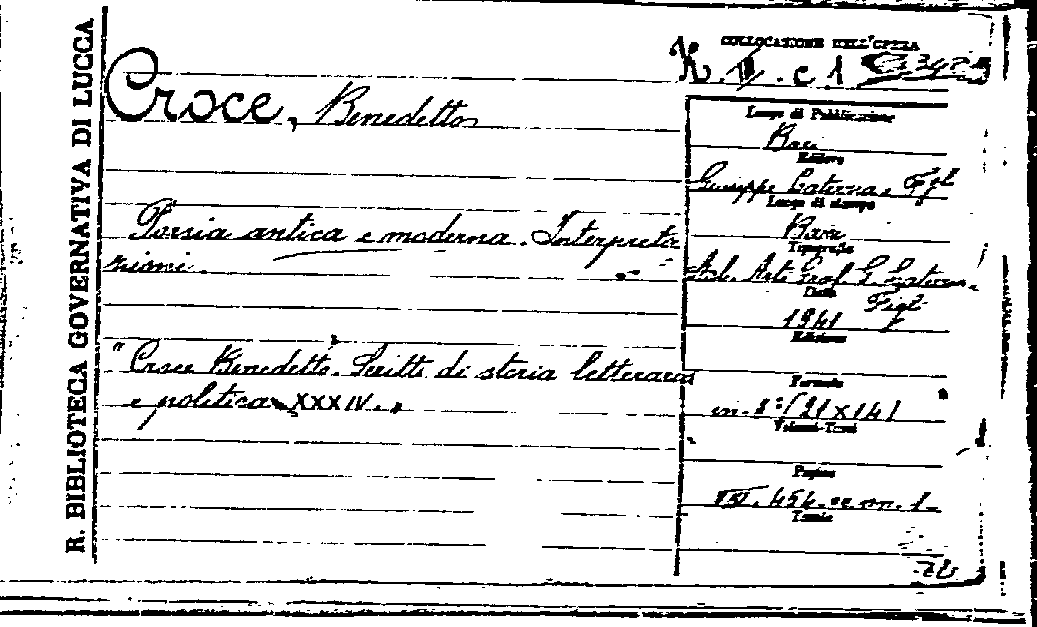 R. BIBLIOTECA GOVERNATIVA DI LUCCA
COLLOCAZIONE DELL'OPERA
c 1
Croce, Benedetto
Poesia antica e moderna. Interpreta
zioni.
"Croce Benedetto. Scritti di storia letteraria
e politica XXXIV."
Luogo di Pubblicazione
Bari
Editore
Giuseppe Laterza e Figli
Luogo di stampa
Bari
Tipografia
Arti Graf. G. Laterza
Figli
Data
1941
Edizione
Formato
in-8°/21 x 14/
Volumi-Tomi
Pagine
454
Tavole